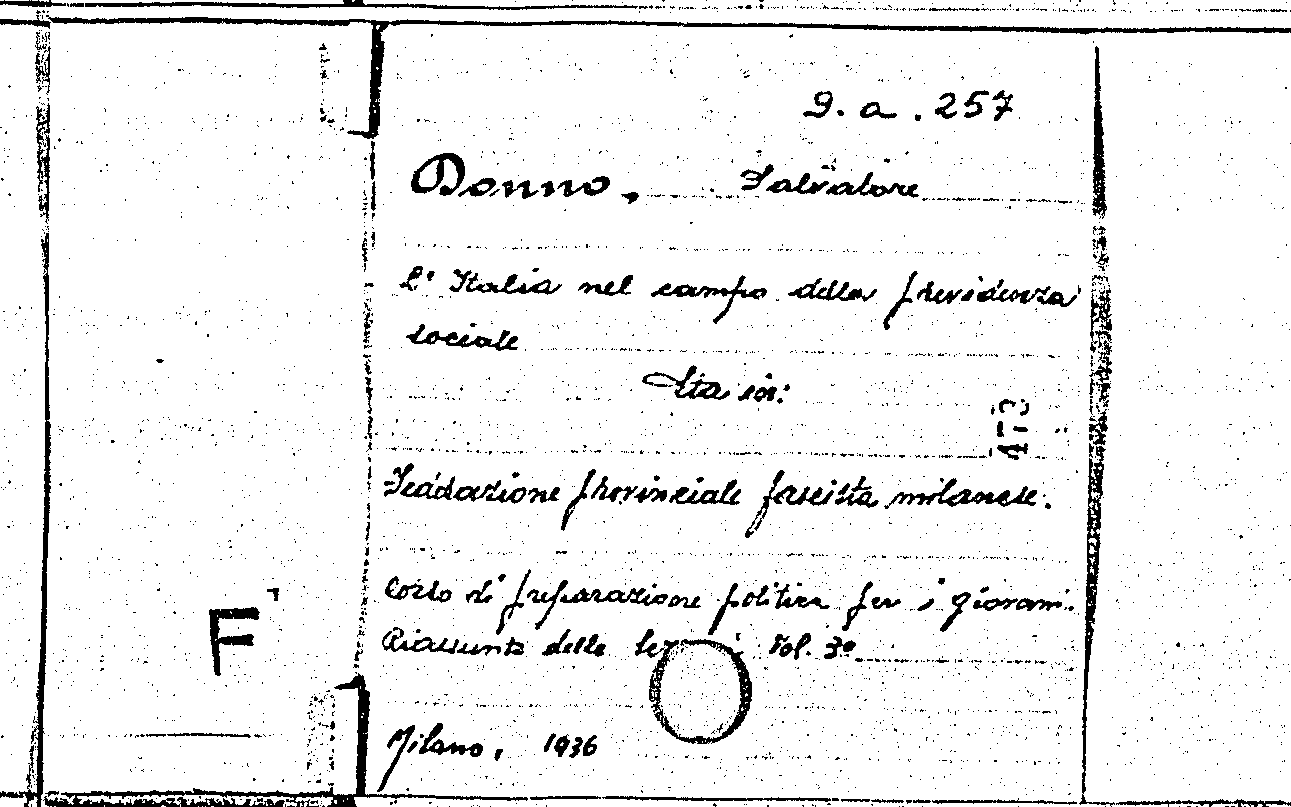 9. a. 257
Donno, Salvatore
L'Italia nel campo della previdenza
sociale
Sta in:
473
Federazione provinciale fascista milanese.
Corso di preparazione politica per i giovani.
Riassunto delle Vol. 3º
Milano, 1936
F